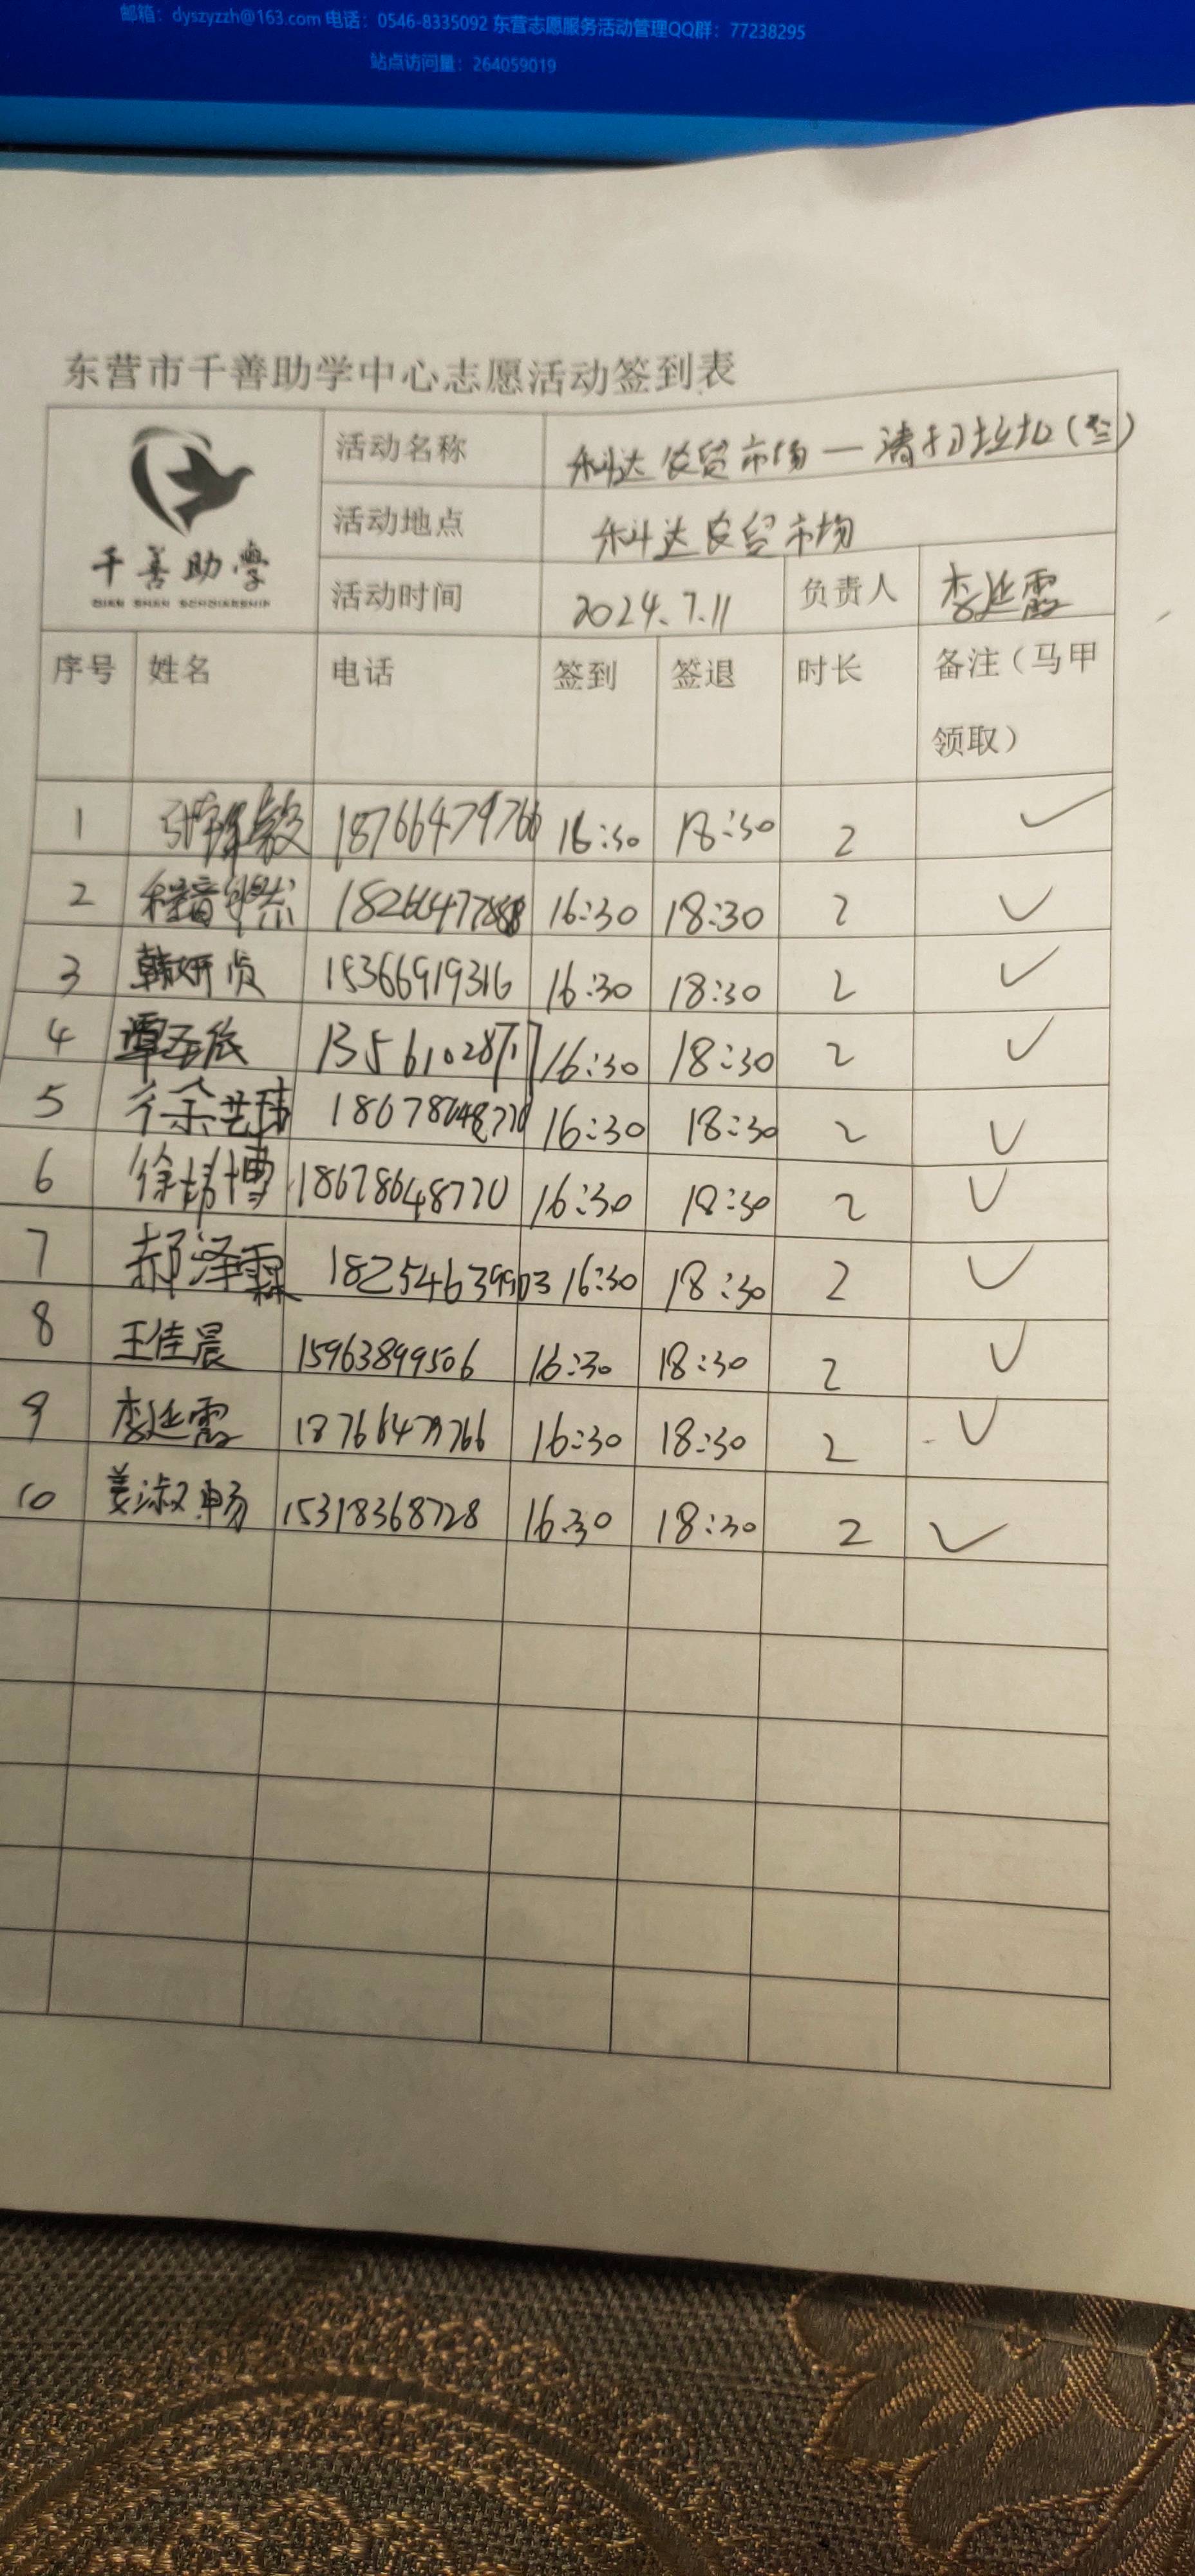 邮箱：dyszyzzh@163.com 电话：0546-8335092 东营志愿服务活动管理QQ群：77238295
站点访问量：264059019
东营市千善助学中心志愿活动签到表
千善助学
QIAN SHAN SCHOLARSHIP
活动名称 农贸市场—清扫垃圾(三)
活动地点 农贸市场
活动时间 2024.7.11 负责人 李延霞
序号 姓名 电话 签到 签退 时长 备注（马甲
领取）
1 18766479766 16:30 18:30 2 ✓
2 16:30 18:30 2 ✓
3 韩妍贞 15366919316 16:30 18:30 2 ✓
4 16:30 18:30 2 ✓
5 徐艺玮 18678648770 16:30 18:30 2 ✓
6 徐梦博 18678648770 16:30 18:30 2 ✓
7 郝泽霖 18254639903 16:30 18:30 2 ✓
8 王佳晨 15963899506 16:30 18:30 2 ✓
9 李延霞 18766479766 16:30 18:30 2 ✓
10 姜淑畅 15318368728 16:30 18:30 2 ✓